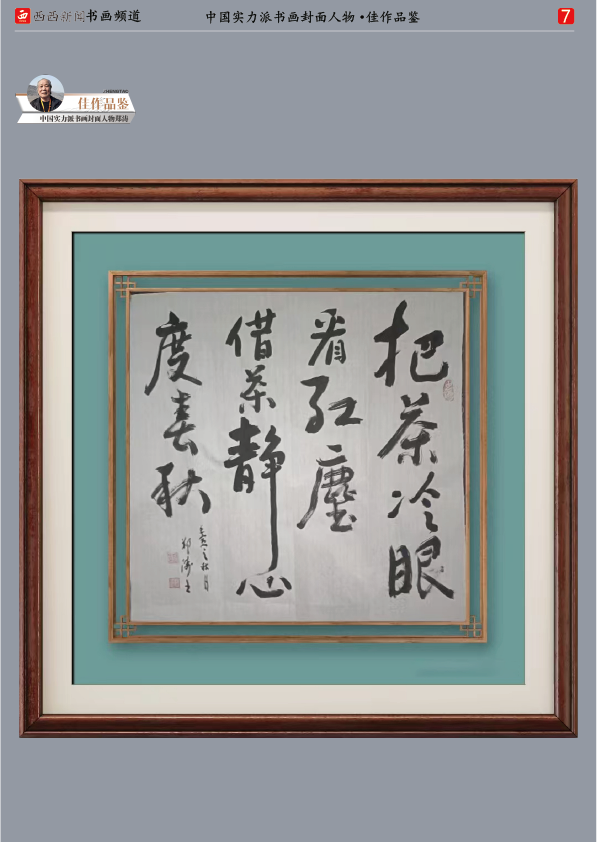 西西新闻书画频道
中国实力派书画封面人物·佳作品鉴
7
ZHENGTAO
佳作品鉴
中国实力派书画封面人物郑涛
把茶冷眼
看红尘
借茶静心
度春秋